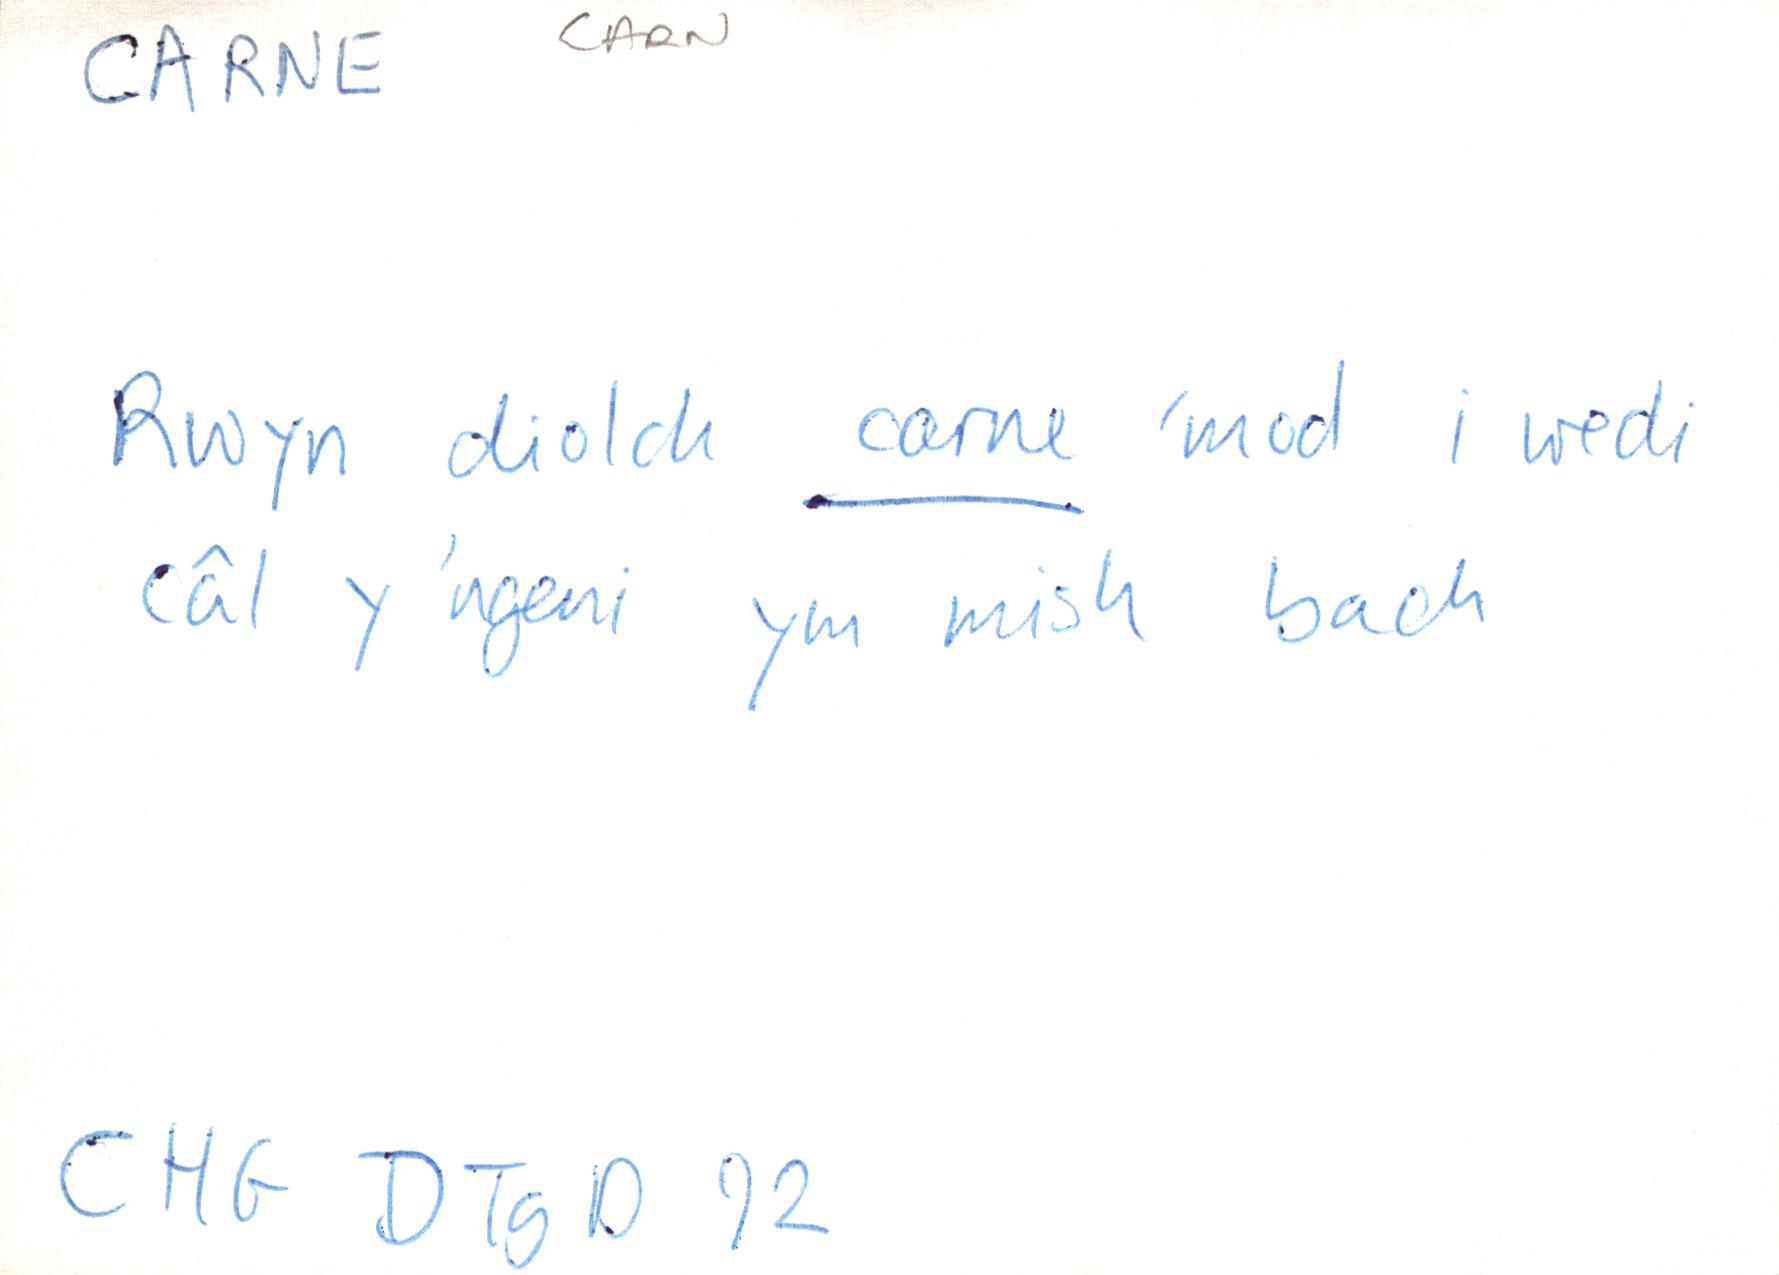 CARNE CARN
Rwyn diolch carne 'mod i wedi
câl y 'ngeni ym mish bach
CHG DTgD 92